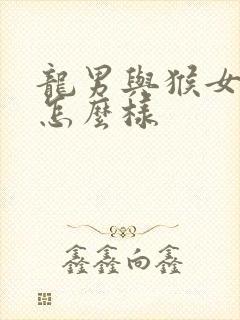 龍男與猴女
怎麼樣
鑫鑫向鑫